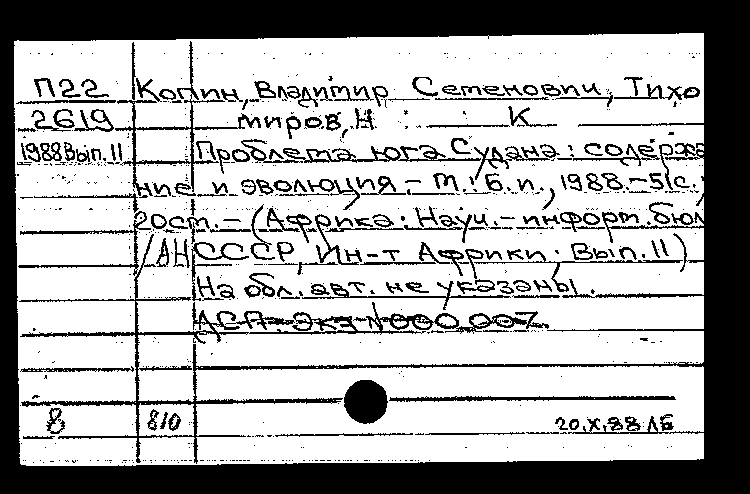 П22 Копин, Владимир Семенович, Тихо
2619 миров, Н К
1988 Вып. 11 Проблема юга Судана: содержа
ние и эволюция. - М.: Б.и., 1988. - 51с.;
20ст. - (Африка: Науч. - информ. бюл
/АН СССР, Ин-т Африки; Вып. 11)
На обл. авт. не указаны.
АСП. Экз N 000 007.
8 810 20.X.88 ЛБ